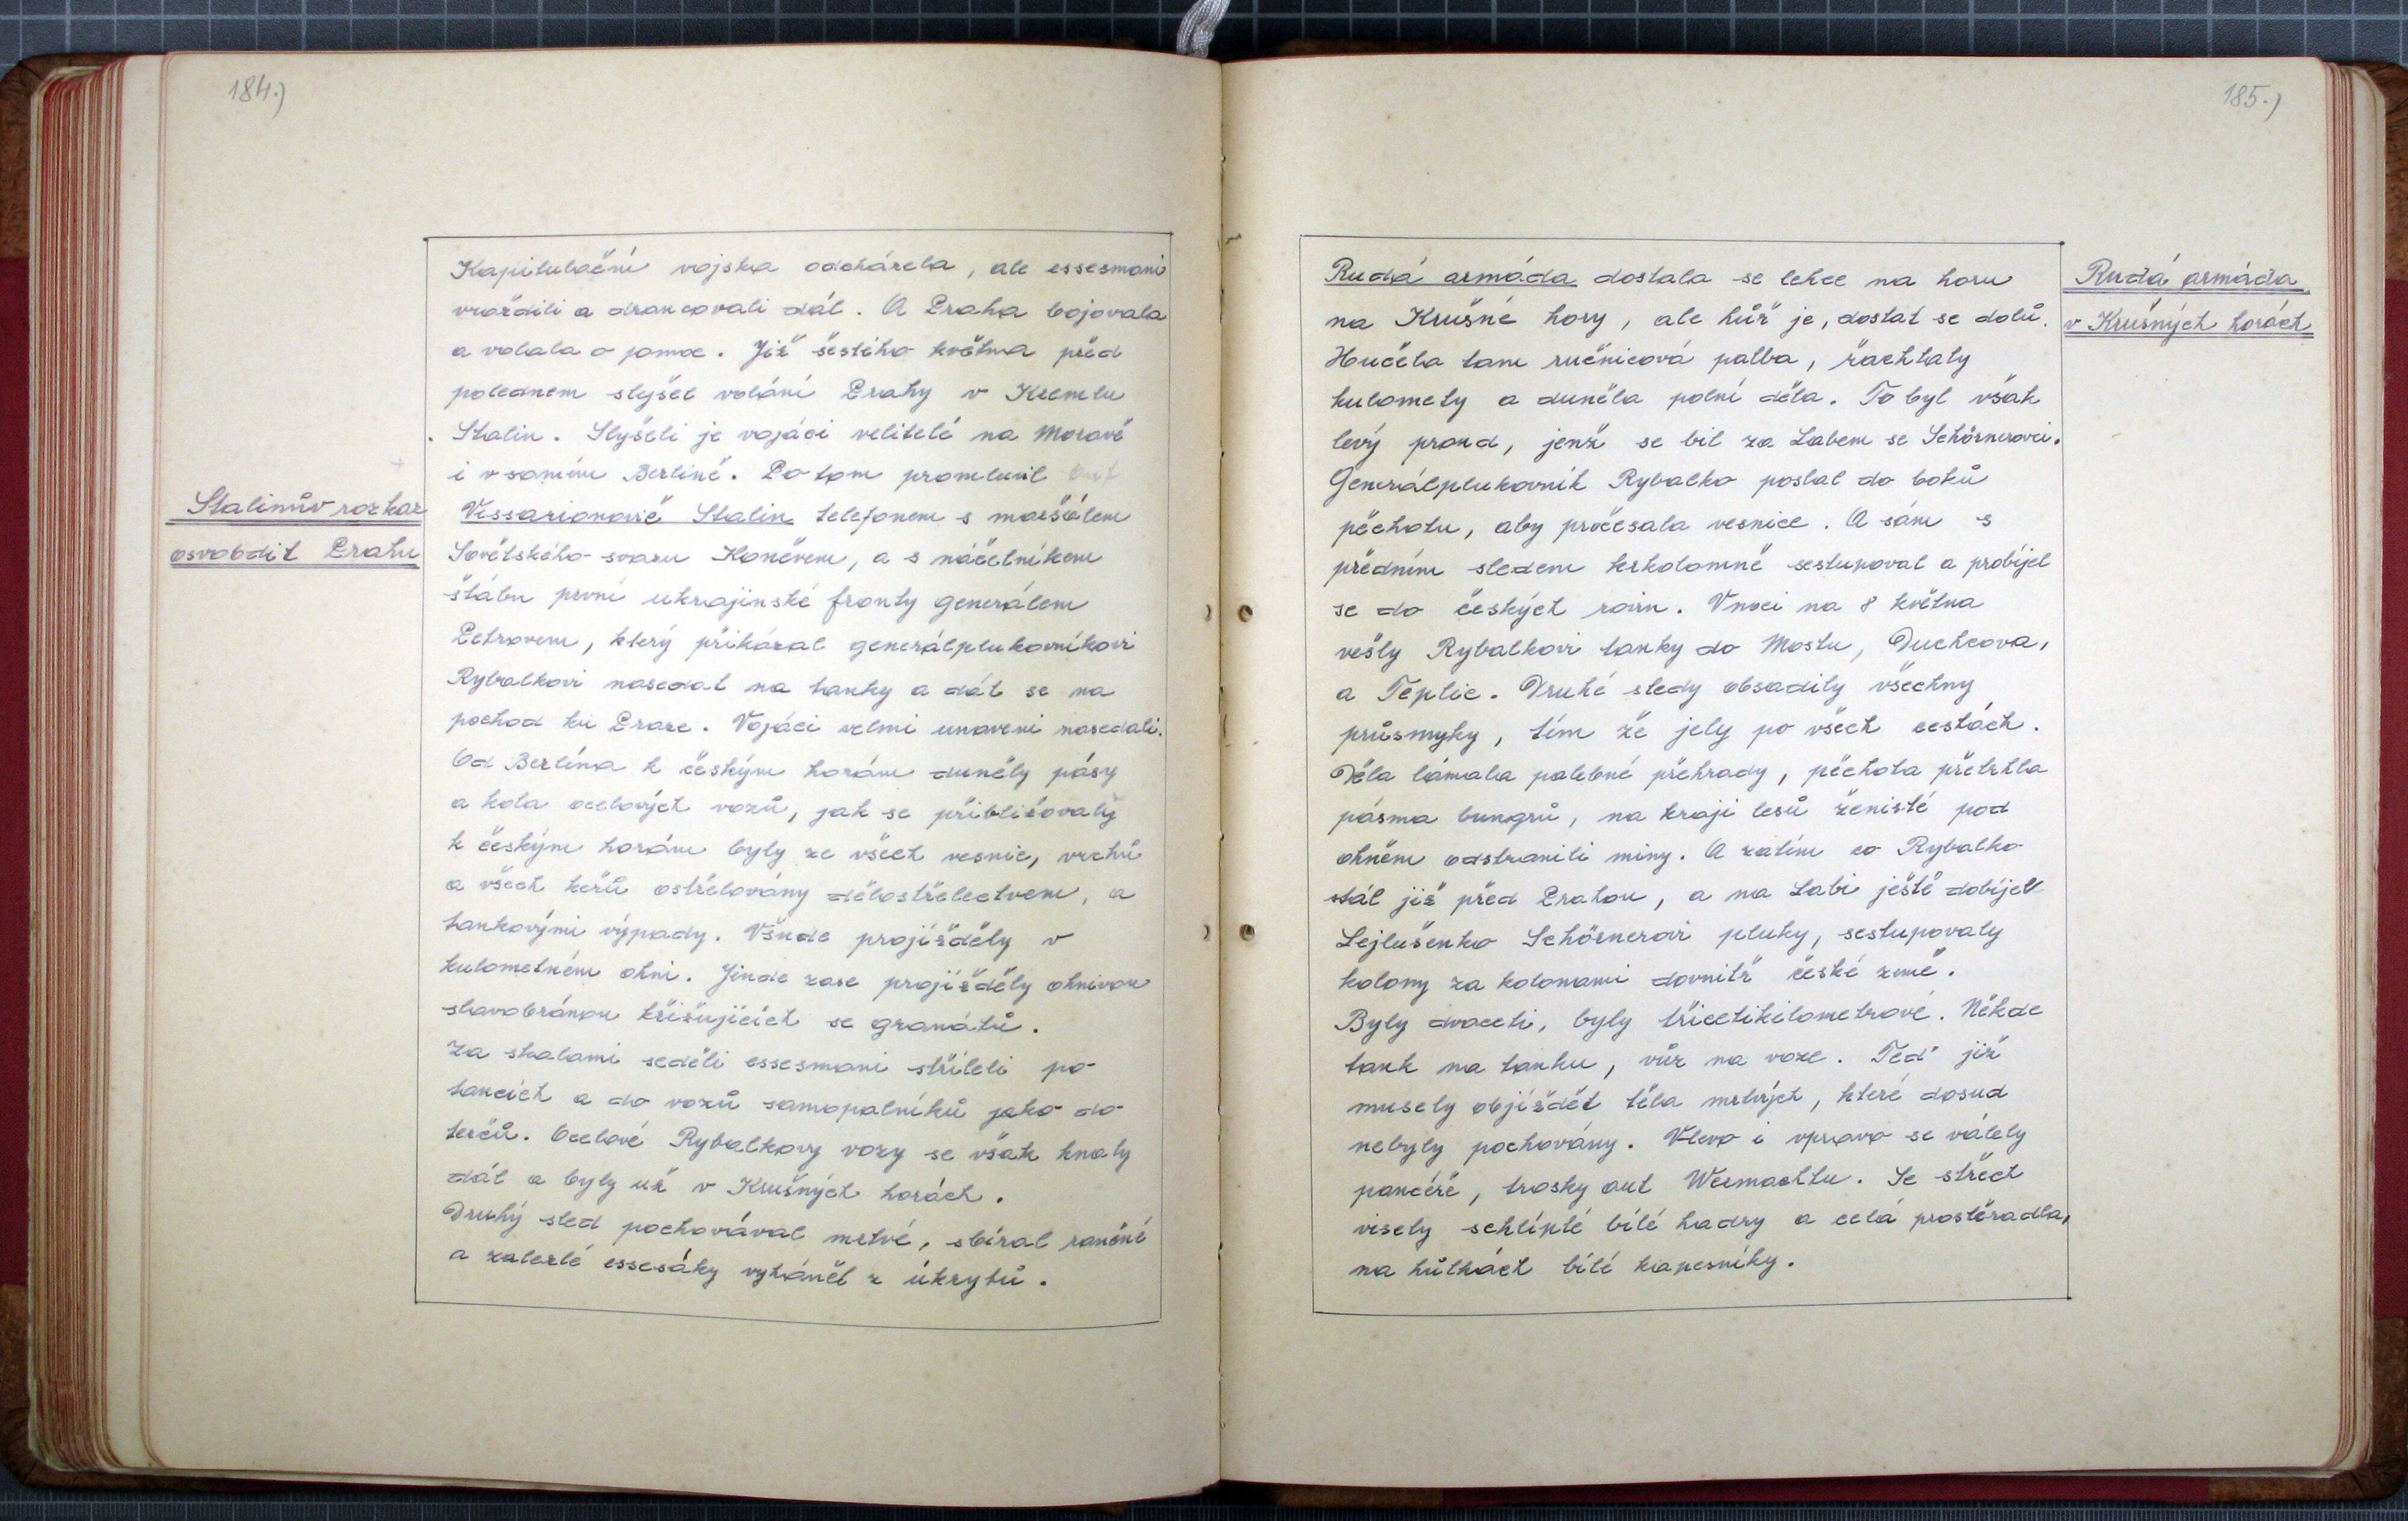 184.)
Kapitulační vojska odcházela, ale essesmani
vraždili a drancovali dál. A Praha bojovala
a volala o pomoc. Již šestého května před
polednem slyšel volání Prahy v Kremlu
Stalin. Slyšeli je vojáci velitelé na Moravě
i v samém Berlíně. Po tom promluvil
Stalinův rozkaz
osvobdit Prahu
Vissarionovič Stalin telefonem s maršálem
Sovětského svazu Koněvem, a s náčelníkem
štábu první ukrajinské fronty generálem
Petrovem, který přikázal generálplukovníkovi
Rybalkovi nasedat na tanky a dát se na
pochod ku Praze. Vojáci velmi unaveni nasedali.
Od Berlína k českým horám duněly pásy
a kola ocelových vozů, jak se přibližovaly
k českým horám byly ze všech vesnic, vrchů
a všech keřů ostřelovány dělostřelectvem, a
tankovými výpady. Všude projížděly v
kulometném ohni. Jinde zase projížděly ohnivou
slavobránou křižujících se granátů.
Za skalami seděli essesmani stříleli po
tancích a do vozů samopalníků jako do
terčů. Ocelové Rybalkovy vozy se však hnaly
dál a byly už v Krušných horách.
Druhý sled pochovával mrtvé, sbíral raněné
a zalezlé essesáky vyháněl z úkrytů.
185.)
Rudá armáda
v Krušných horách
Rudá armáda dostala se lehce na horu
na Krušné hory, ale hůř je, dostat se dolů.
Hučela tam ručnicová palba, řachtaly
kulomety a duněla polní děla. To byl však
levý proud, jenž se bil za Labem se Schörnerovci.
Generálplukovník Rybalko poslal do boků
pěchotu, aby pročesala vesnice. A sám s
předním sledem krkolomně sestupoval a probíjel
se do českých rovin. Vnoci na 8 května
vešly Rybalkovi tanky do Mostu, Duchcova,
a Teplic. Druhé sledy obsadily všechny
průsmyky, tím že jely po všech cestách.
Děla lámala palebné přehrady, pěchota přetrhla
pásma bungrů, na kraji lesů ženisté pod
ohněm odstranili miny. A zatím co Rybalko
stál již před Prahou, a na Labi ještě dobíjel
Lejlušenko Schörnerovi pluky, sestupovaly
kolony za kolonami dovnitř české země.
Byly dvaceti, byly třicetikilometrové. Někde
tank na tanku, vůz na voze. Teď již
musely objíždět těla mrtvých, které dosud
nebyly pochovány. Vlevo i vpravo se válely
pancéře, trosky aut Wermachtu. Se střech
visely schlíplé bílé hadry a celá prostěradla,
na hůlkách bílé kapesníky.